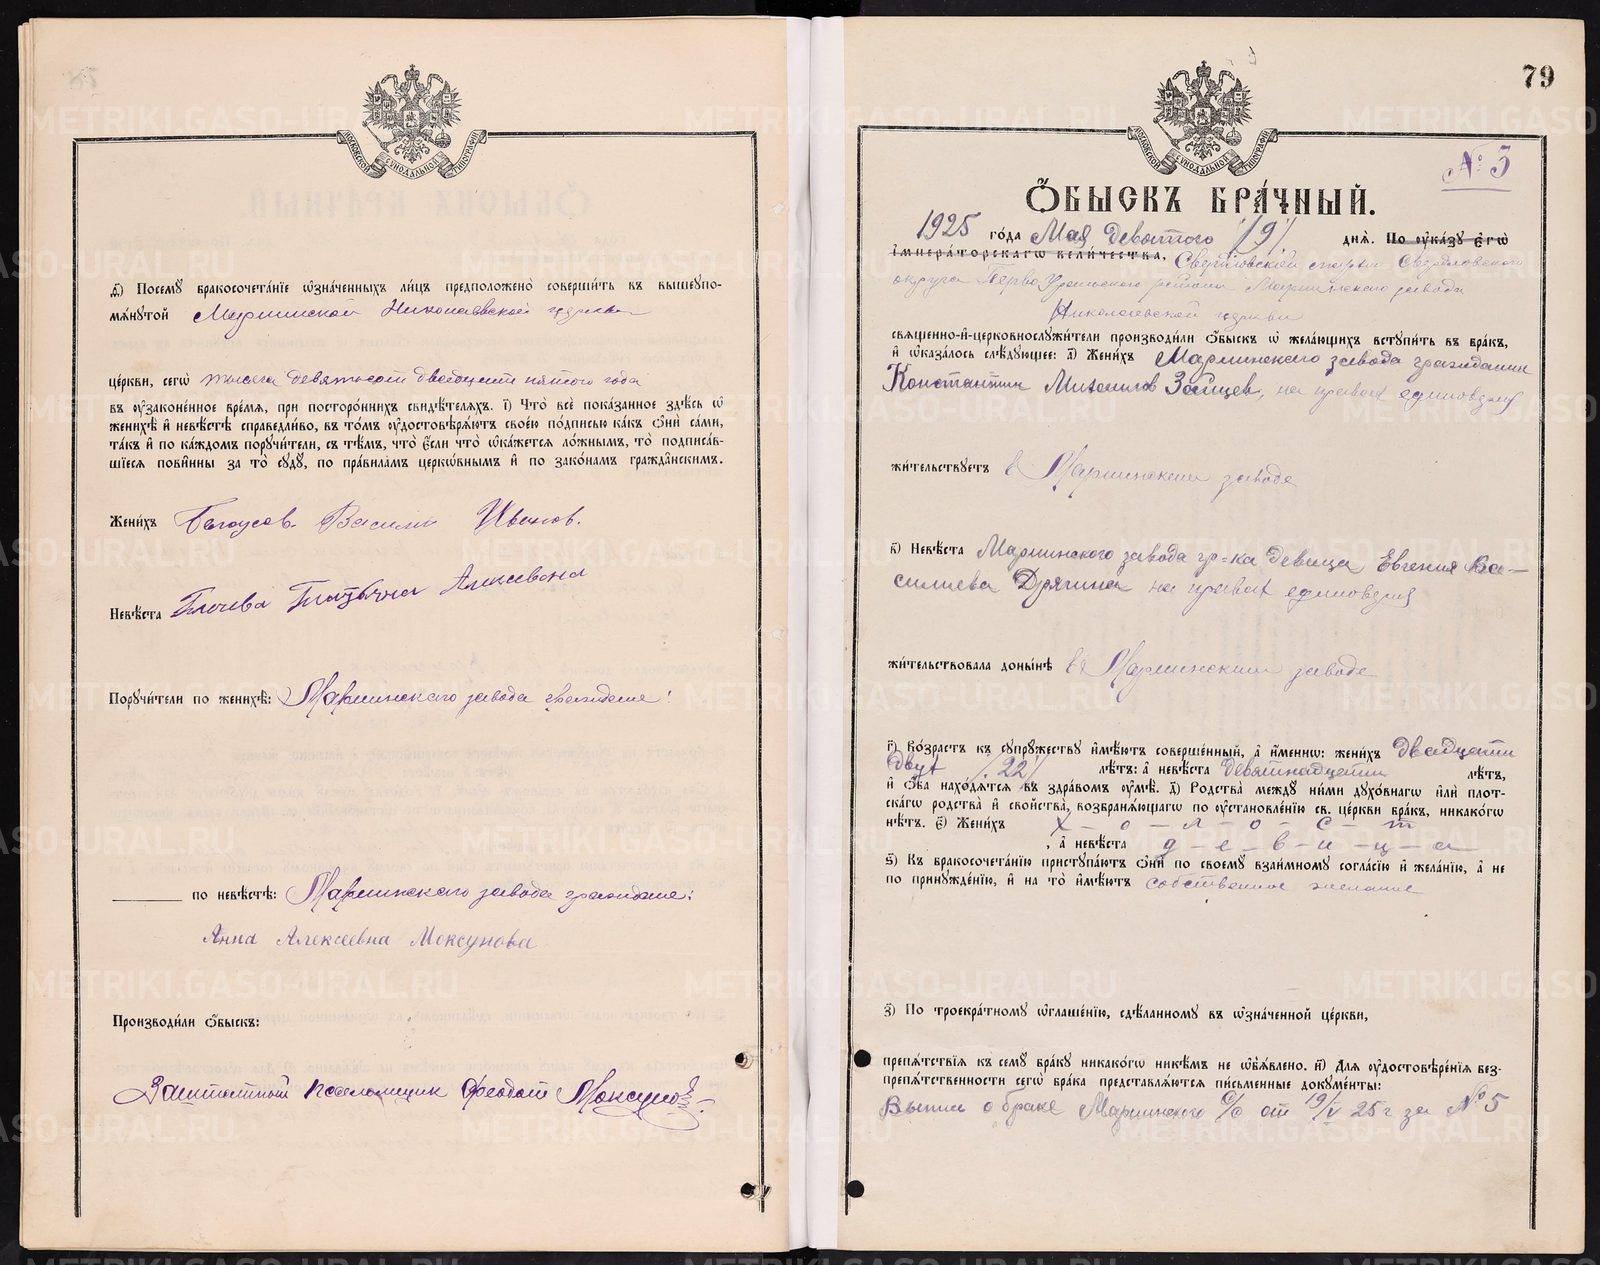 МОСКОВСКОЙ СѴНОДАЛЬНОЙ ТИПОГРАФІИ
Ѳ҃) Посемꙋ бракосочета́нїе ѡ҆зна́ченныхъ ли́цъ предположено̀ соверши́ть въ вышеꙋпо-
мѧ́нꙋтой Мариинской Николаевской церкви
це́ркви, сегѡ̀ тысяча девятьсот двадцать пятого года
въ ᲂу҆зако́ненное вре́мѧ, при посторо́ннихъ свидѣ́телѧхъ. І҃) Что̀ всѐ пока́занное здѣ́сь ѡ҆
женихѣ̀ и҆ невѣ́стѣ справедли́во, въ то́мъ ᲂу҆достовѣрѧ́ютъ свое́ю по́дписью ка́къ ѻ҆нѝ са́ми,
та́къ и҆ по ка́ждомъ порꙋчи́тели, съ тѣ́мъ, что̀ є҆́сли что̀ ѡ҆ка́жетсѧ ло́жнымъ, то̀ подписа́в-
шїесѧ пови́нны за то̀ сꙋдꙋ̀, по пра́виламъ церко́внымъ и҆ по зако́намъ гражда́нскимъ.
Жени́хъ Белоусов Василий Иванов.
Невѣ́ста Татьяна Алексевена
Порꙋчи́тели по женихѣ̀: Мариинского завода граждане:
по невѣ́стѣ: Мариинского завода граждане:
Анна Алексеевна Моксунова
Производи́ли ѻ҆́быскъ:
Заштатный Псаломщик Феодот Моксунов
79
МОСКОВСКОЙ СѴНОДАЛЬНОЙ ТИПОГРАФІИ
№ 5
Ѻ҆́БЫСКЪ БРА́ЧНЫЙ.
1925 го́да Мая девятого /9/ днѧ̀. По ᲂу҆ка́зꙋ є҆гѡ̀
і҆мпера́торскагѡ вели́чества, Свердловской епархии Свердловского
округа Перво Уральского района Мариинского завода
Николаевской церкви
свѧще́нно-и҆-церковнослꙋжи́тели производи́ли ѻ҆́быскъ ѡ҆ жела́ющихъ встꙋпи́ть въ бра́къ,
и҆ ѡ҆каза́лось слѣ́дꙋющее: А҃) Жени́хъ Мариинского завода гражданин
Константин Михаилов Зайцев, на правах единоверия
жи́тельствꙋетъ в Мариинском заводе
В҃) Невѣ́ста Мариинского завода гр-ка девица Евгения Ва-
силиева Дрягина на правах единоверия
жи́тельствовала доны́нѣ в Мариинском заводе
Г҃) Во́зрастъ къ сꙋпрꙋ́жествꙋ и҆мѣ́ютъ соверше́нный, а҆ и҆́менно: жени́хъ двадцати
двух /22/ лѣ́тъ: а҆ невѣ́ста девятнадцати лѣ́тъ,
и҆ ѻ҆́ба нахо́дѧтсѧ въ здра́вомъ ᲂу҆мѣ̀. Д҃) Родства̀ междꙋ ни́ми дꙋхо́внагѡ и҆лѝ плот-
ска́гѡ родства̀ и҆ свойства̀, возбранѧ́ющагѡ по ᲂу҆становле́нїю св. це́ркви бра́къ, никако́гѡ
нѣ́тъ. Є҃) Жени́хъ х-о-л-о-с-т
, а҆ невѣ́ста д-е-в-и-ц-а
Ѕ҃) Къ бракосочета́нїю пристꙋпа́ютъ ѻ҆нѝ по своемꙋ̀ взаи́мномꙋ согла́сїю и҆ жела́нїю, а҆ не
по принꙋжде́нїю, и҆ на то̀ и҆мѣ́ютъ собственное желание
З҃) По троекра́тномꙋ ѡ҆глаше́нїю, сдѣ́ланномꙋ въ ѡ҆зна́ченной це́ркви,
препѧ́тствїѧ къ семꙋ̀ бра́кꙋ никако́гѡ никѣ́мъ не ѡ҆б̾ѧ́влено. И҃) Длѧ̀ ᲂу҆достовѣ́ренїѧ без-
препѧ́тственности сегѡ̀ бра́ка представлѧ́ютсѧ пи́сьменные докꙋме́нты:
Выпись о браке Мариинского С/С от 19/V 25 г за № 5
METRIKI.GASO-URAL.RU